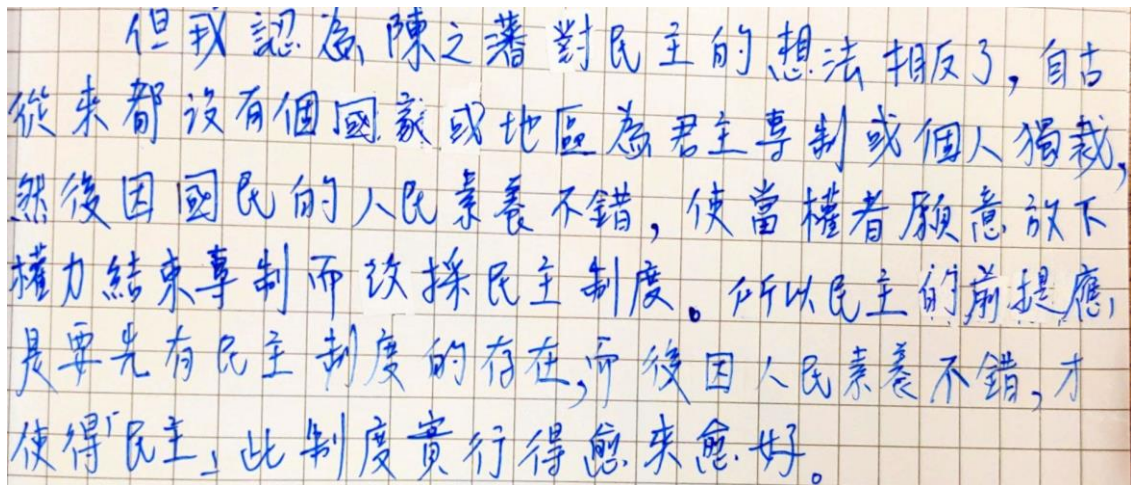 但我認為陳之藩對民主的想法相反了，自古
從來都沒有個國家或地區為君主專制或個人獨裁，
然後因國民的人民素養不錯，使當權者願意放下
權力結束專制而改採民主制度。所以民主的前提應
是要先有民主制度的存在，而後因人民素養不錯，才
使得「民主」此制度實行得愈來愈好。